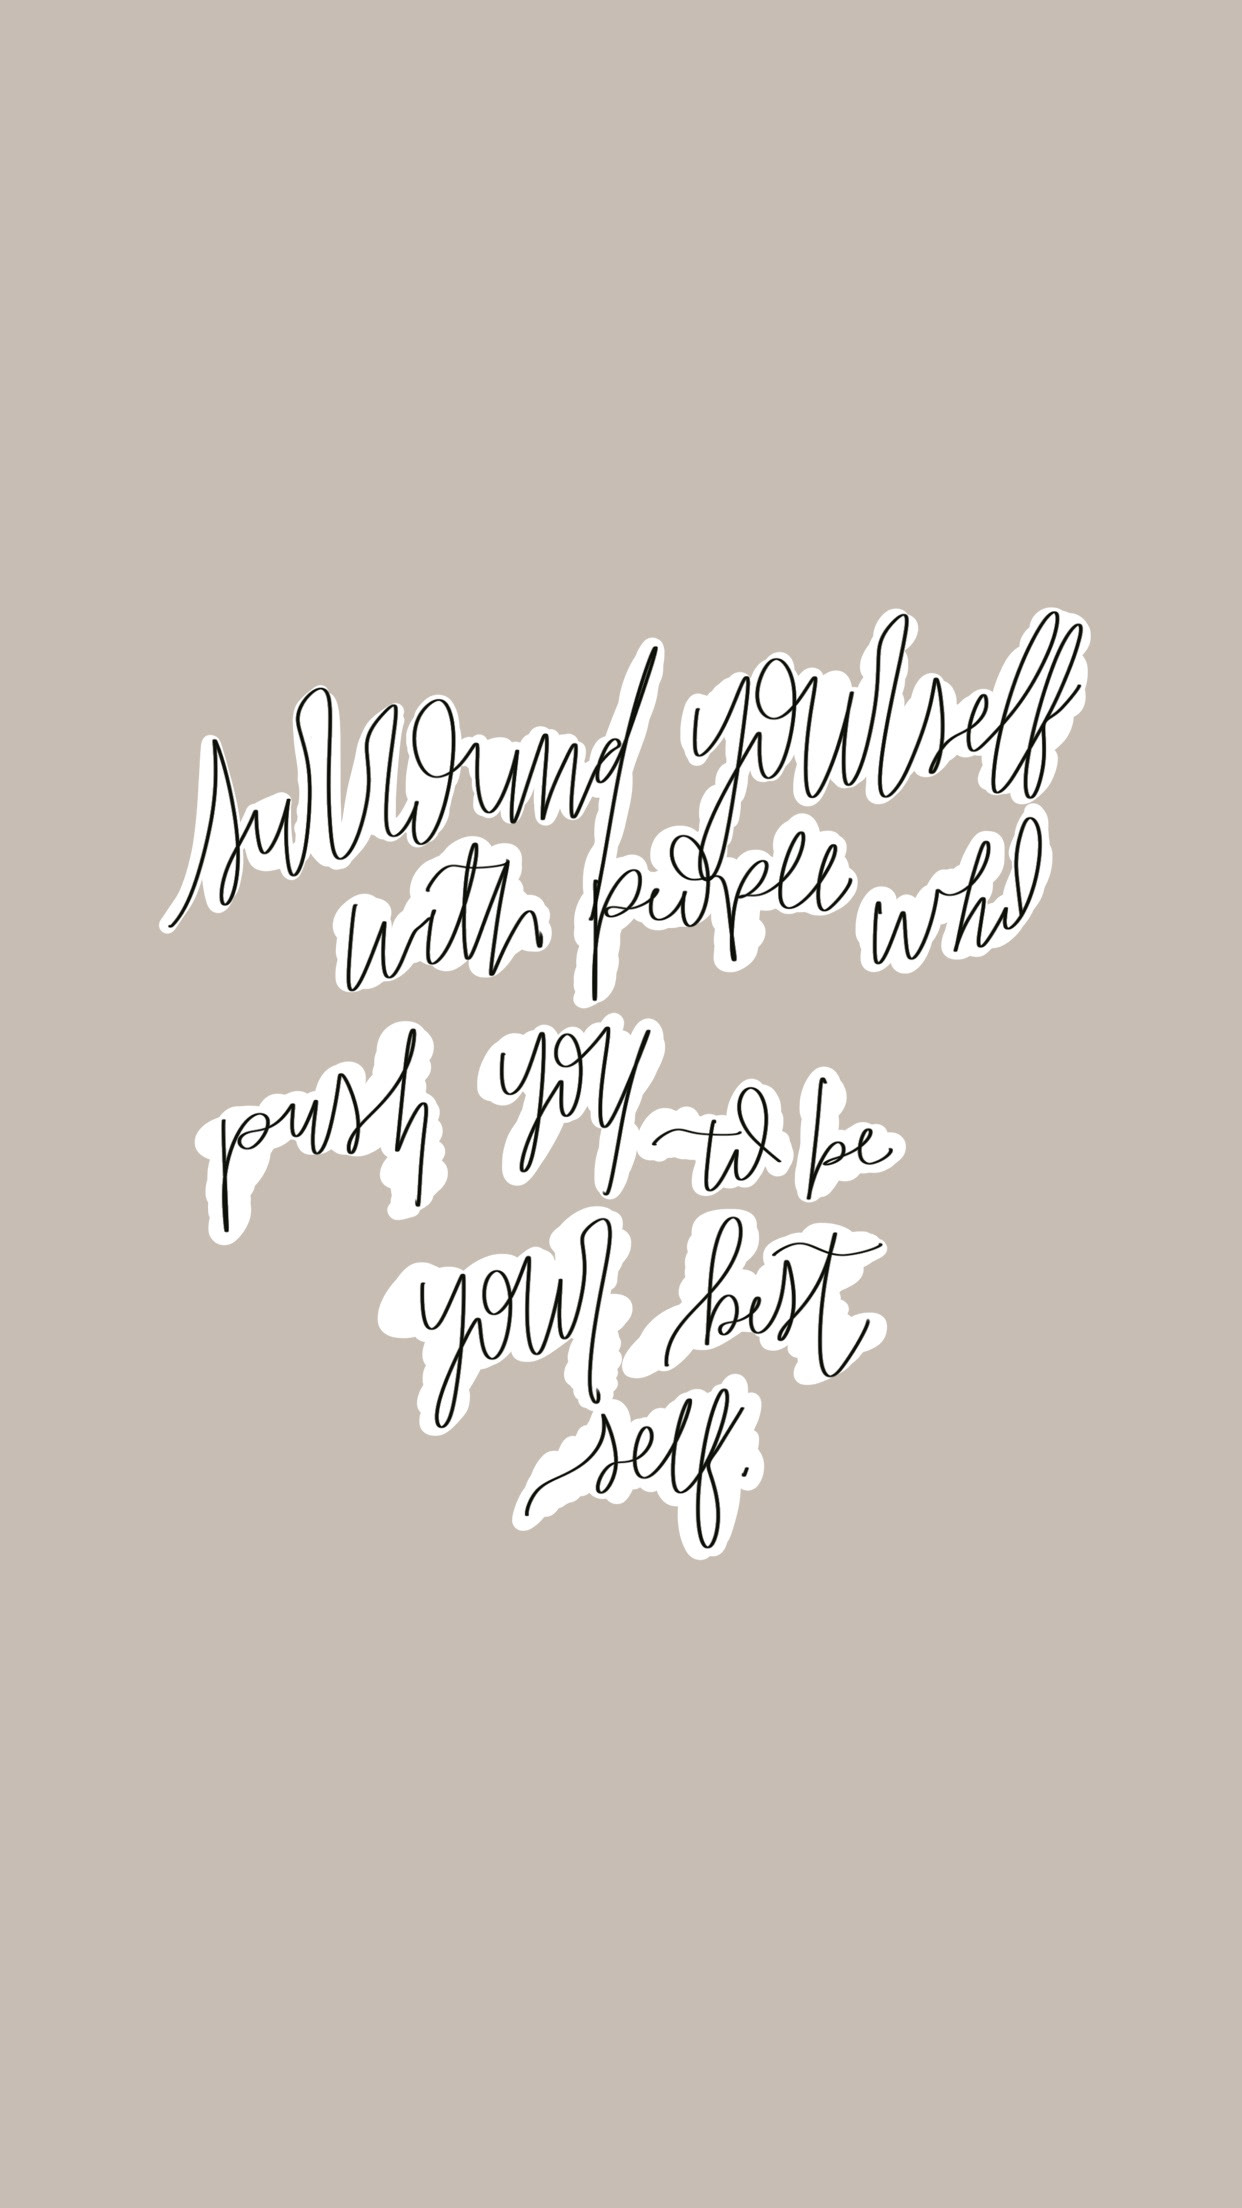 surround yourself
with people who
push you to be
your best
self.